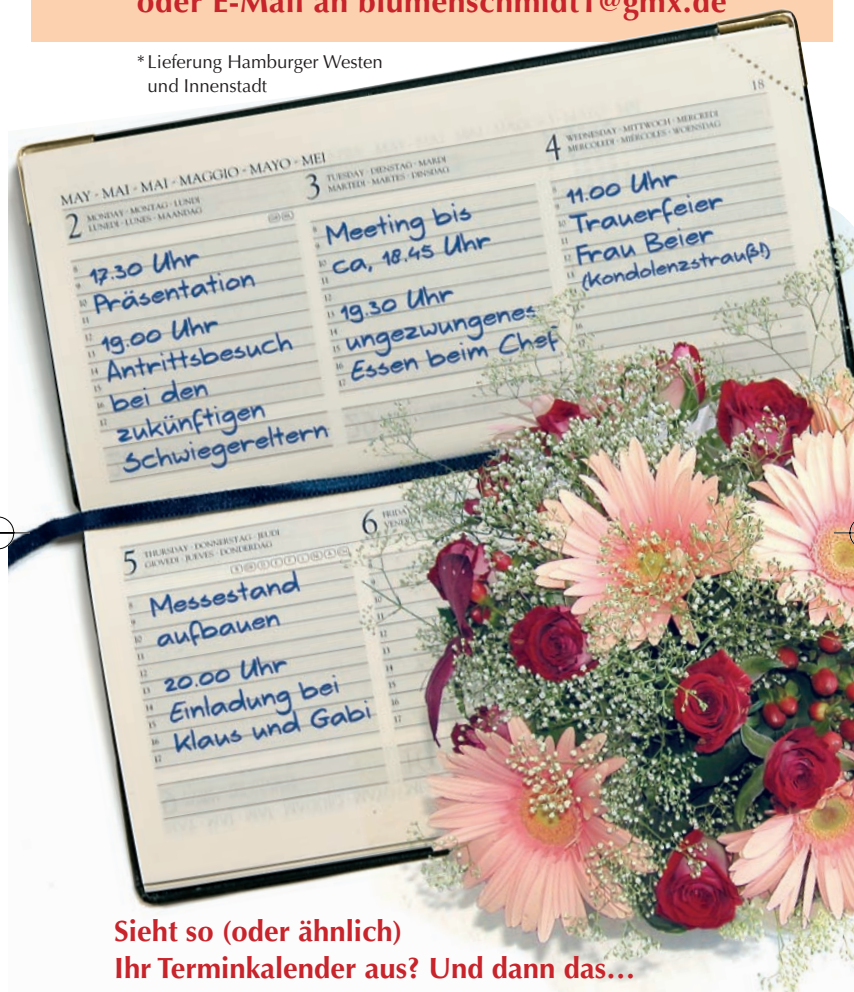 oder E-Mail an blumenschmidt1@gmx.de
* Lieferung Hamburger Westen
und Innenstadt
18
MAY - MAI - MAI - MAGGIO - MAYO - MEI
2 MONDAY · MONTAG · LUNDI
LUNEDI · LUNES · MAANDAG
17.30 Uhr
Präsentation
19.00 Uhr
Antrittsbesuch
bei den
zukünftigen
Schwiegereltern
3 TUESDAY · DIENSTAG · MARDI
MARTEDI · MARTES · DINSDAG
Meeting bis
ca, 18.45 Uhr
19.30 Uhr
ungezwungenes
Essen beim Chef
4 WEDNESDAY · MITTWOCH · MERCREDI
MERCOLEDI · MIERCOLES · WOENSDAG
11.00 Uhr
Trauerfeier
Frau Beier
(Kondolenzstrauß!)
5 THURSDAY · DONNERSTAG · JEUDI
GIOVEDI · JUEVES · DONDERDAG
Messestand
aufbauen
20.00 Uhr
Einladung bei
Klaus und Gabi
6
Sieht so (oder ähnlich)
Ihr Terminkalender aus? Und dann das...